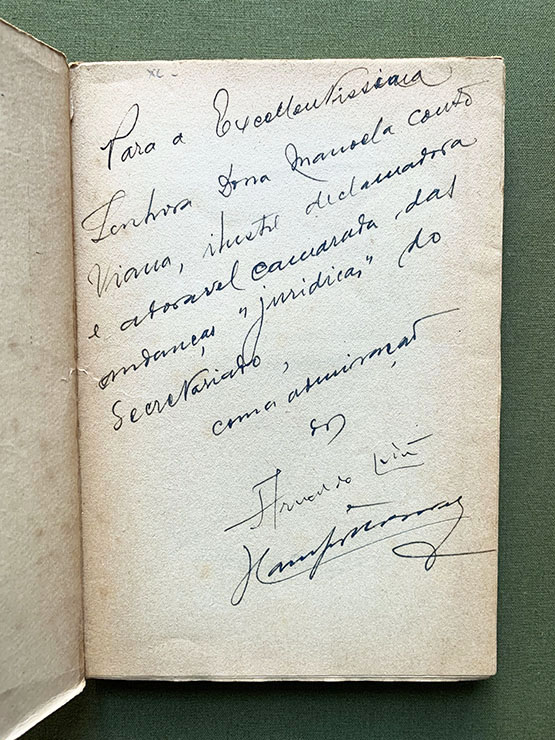 XL -
Para a Excellentissima
Senhora Dona Manoela couto
Viana, ilustre declamadora
e adoravel camarada das
andanças "juridicas" do
Secretariado,
com a admiração
do
Arnaldo